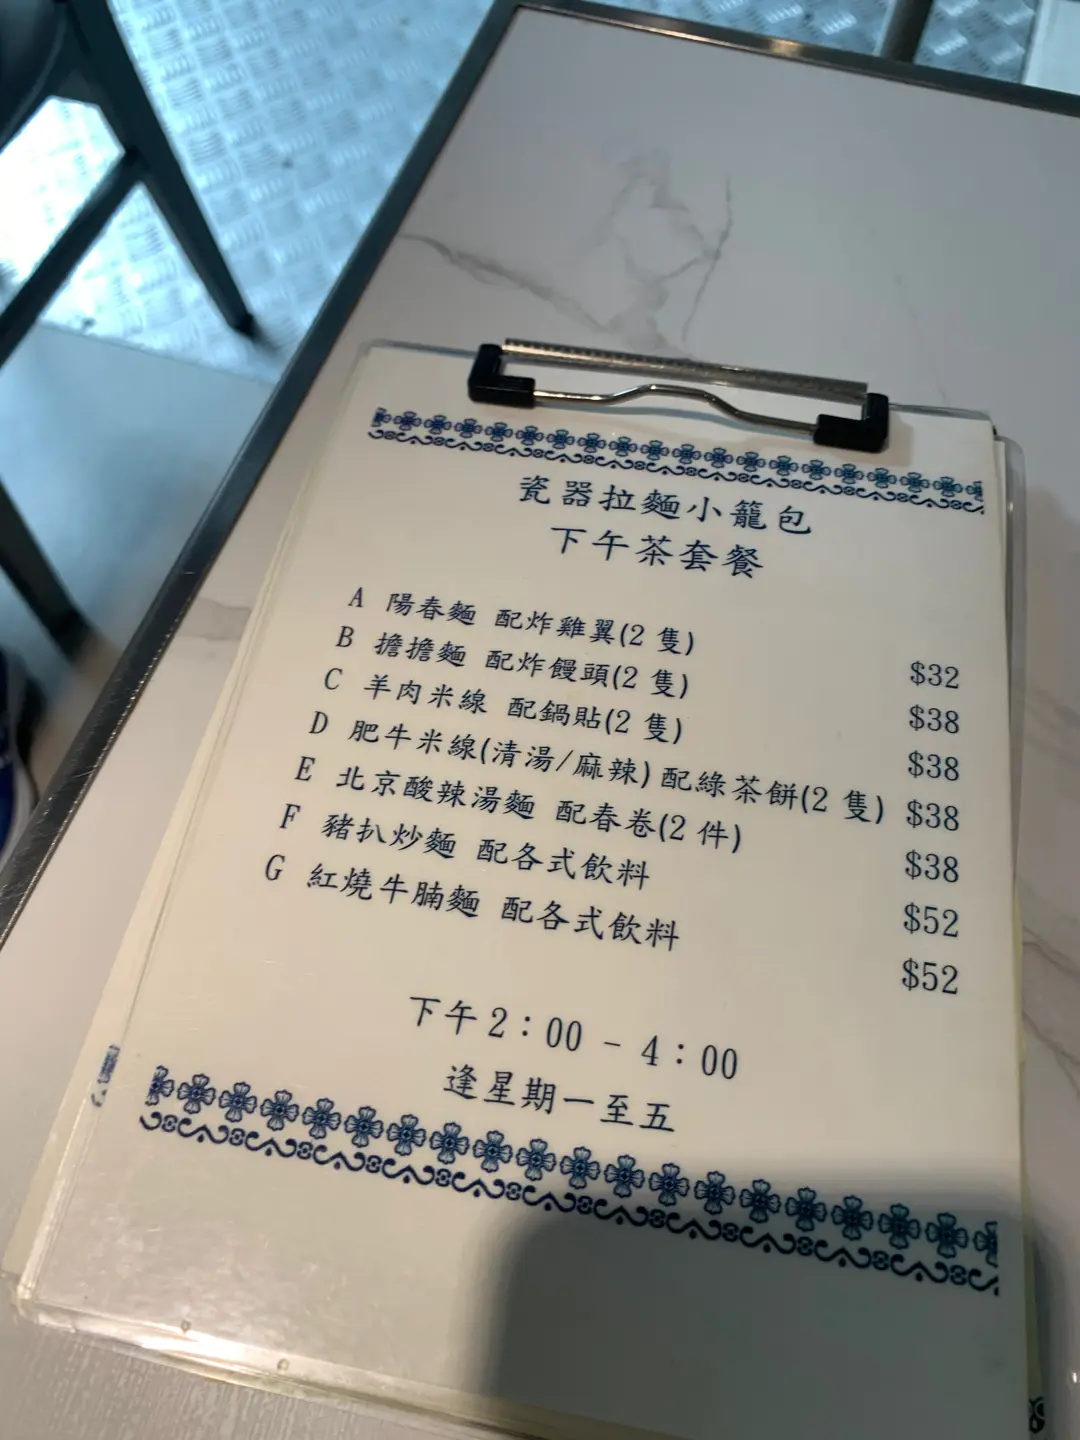 瓷器拉麵小籠包
下午茶套餐
A 陽春麵 配炸雞翼(2 隻) $32
B 擔擔麵 配炸饅頭(2 隻) $38
C 羊肉米線 配鍋貼(2 隻) $38
D 肥牛米線(清湯/麻辣) 配綠茶餅(2 隻) $38
E 北京酸辣湯麵 配春卷(2 件) $38
F 豬扒炒麵 配各式飲料 $52
G 紅燒牛腩麵 配各式飲料 $52
下午 2：00 - 4：00
逢星期一至五